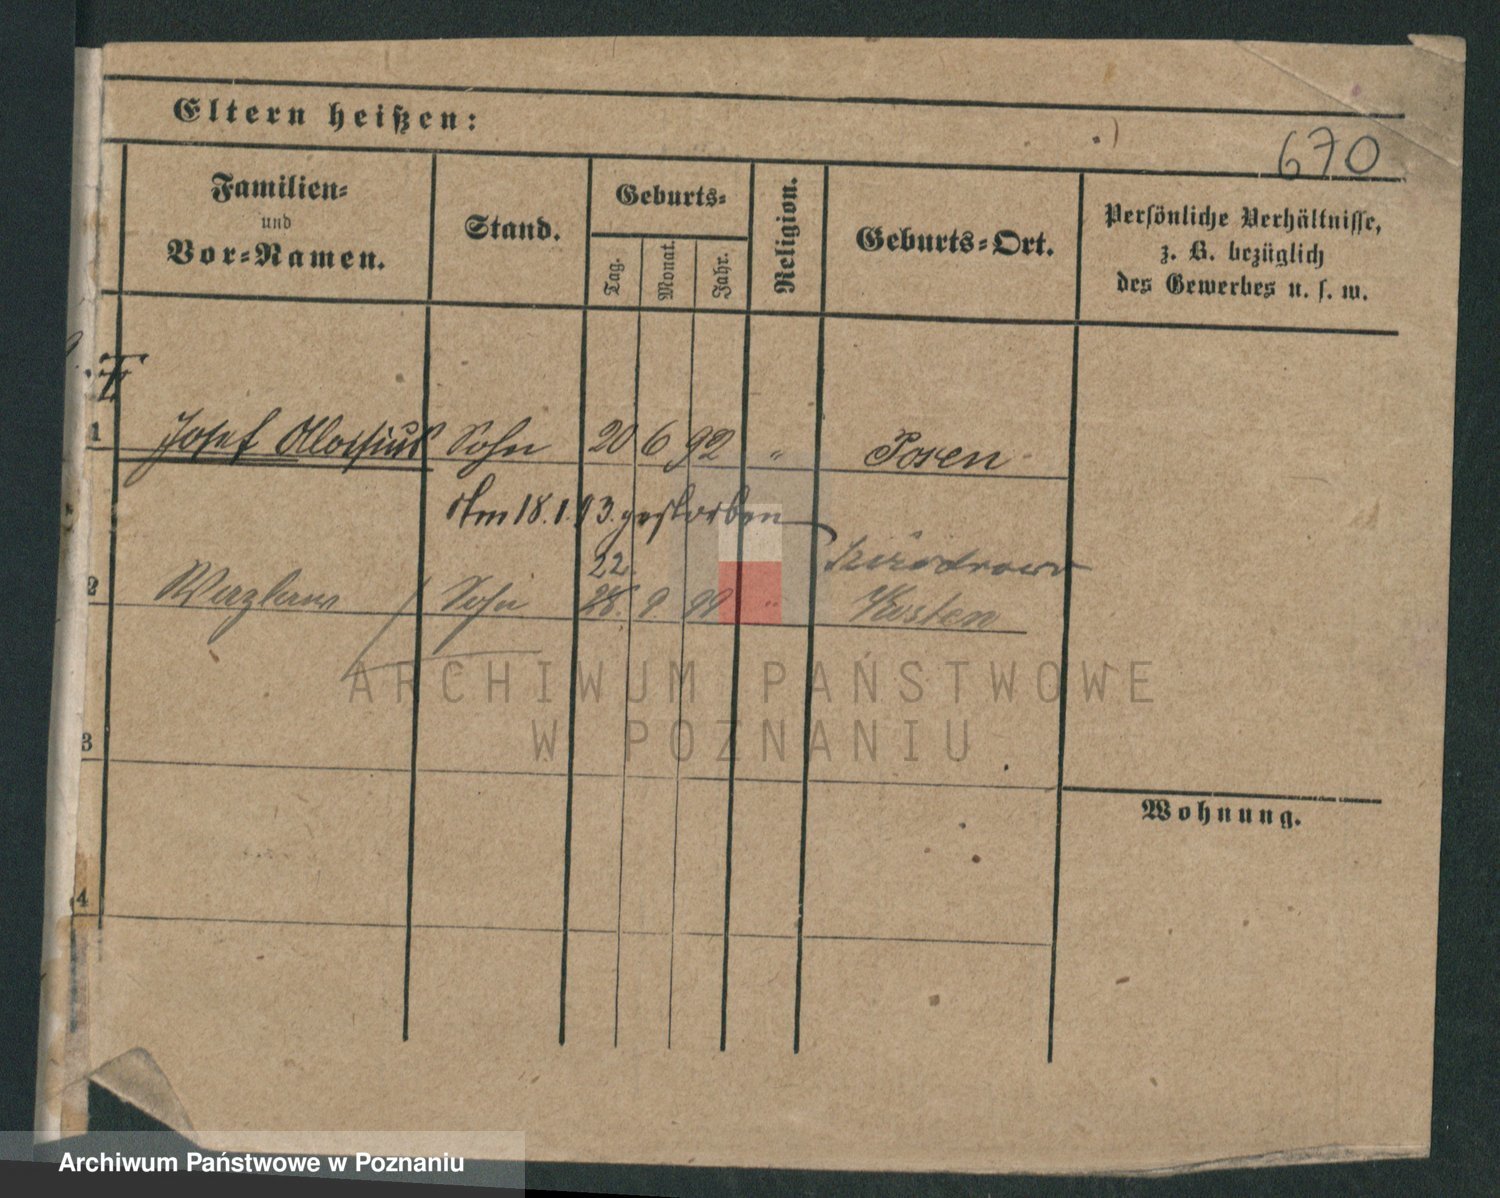 670
Eltern heißen:
Familien-
und
Vor-Namen.
Stand.
Geburts-
Tag.
Monat.
Jahr.
Religion.
Geburts-Ort.
Persönliche Verhältnisse,
z. B. bezüglich
des Gewerbes u. s. w.
1 Josef Aloisius Sohn 20 6 92 " Posen
Am 18.1.93. gestorben
22.
2 Wazlaw Sohn 28. 9. 99. " Kosten
ARCHIWUM PAŃSTWOWE
W POZNANIU
3
Wohnung.
4
Archiwum Państwowe w Poznaniu